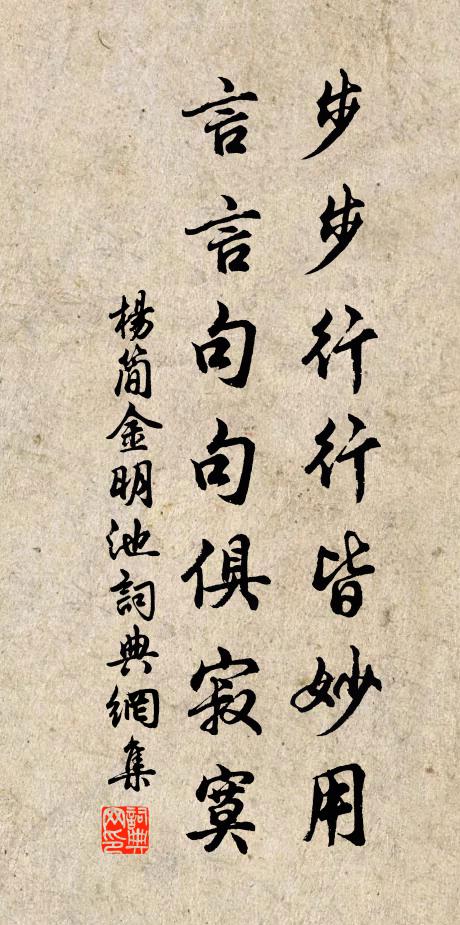 步步行行皆妙用
言言句句俱寂寞
楊简金明池詞典網集
詞典网印